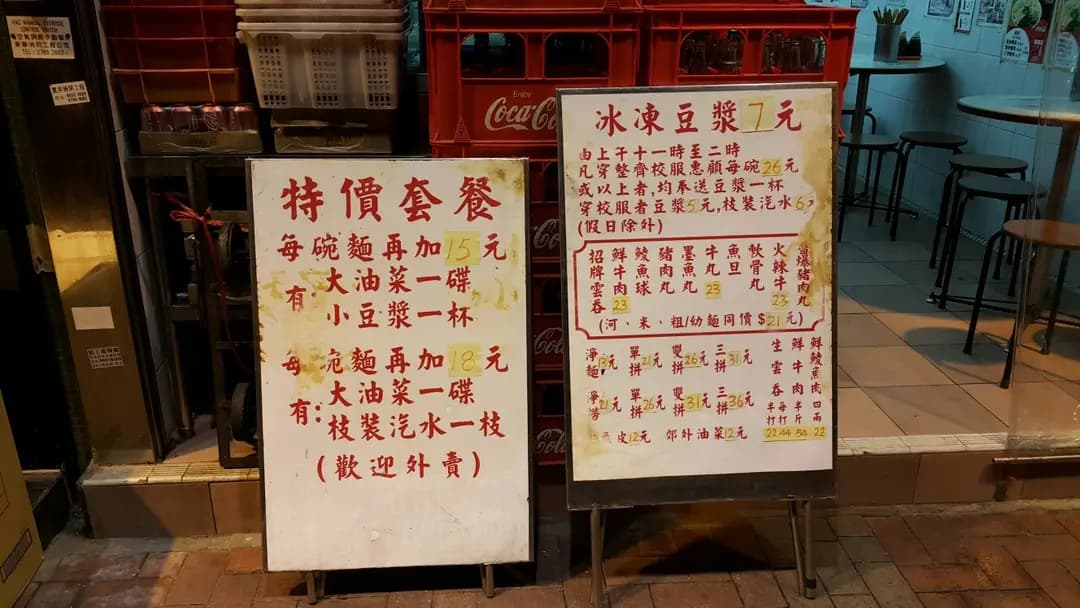 FAC MANUAL OVERRIDE
CONTROL SWITCH
Enjoy
Coca-Cola
特價套餐
每碗麵再加15元
有:大油菜一碟
小豆漿一杯
每碗麵再加18元
有:大油菜一碟
枝裝汽水一枝
(歡迎外賣)
冰凍豆漿7元
由上午十一時至二時
凡穿整齊校服惠顧每碗26元
或以上者,均奉送豆漿一杯
穿校服者豆漿5元,枝裝汽水6
(假日除外)
招牌雲吞23
鮮牛肉
鯪魚球
豬肉丸
墨魚丸
牛丸23
魚旦
軟骨丸
火辣牛23
豬肉丸
(河、米、粗/幼麵同價$21元)
淨麵 單拼21元 雙拼26元 三拼31元
淨撈21元 單拼26元 雙拼31元 三拼36元
皮12元 郊外油菜12元
生雲吞半打22
鮮牛肉每打44
半斤54
鮮鯪魚肉四兩22